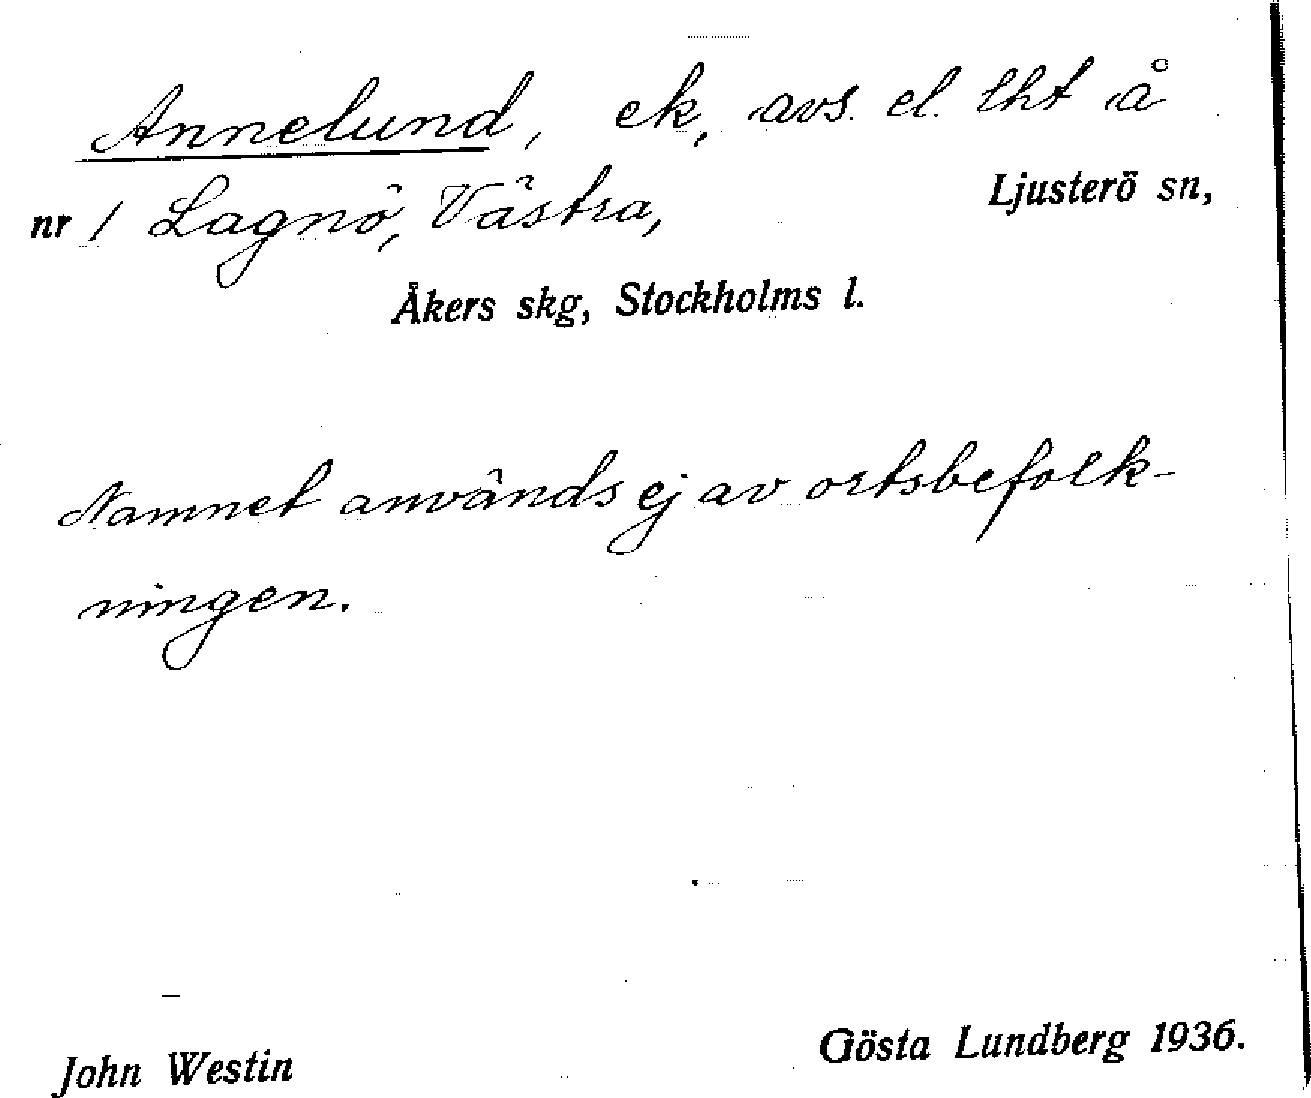 Annelund, ek, avs. el. lht å
nr 1 Lagnö, Västra, Ljusterö sn,
Åkers skg, Stockholms l.
Namnet används ej av ortsbefolk-
ningen.
John Westin Gösta Lundberg 1936.